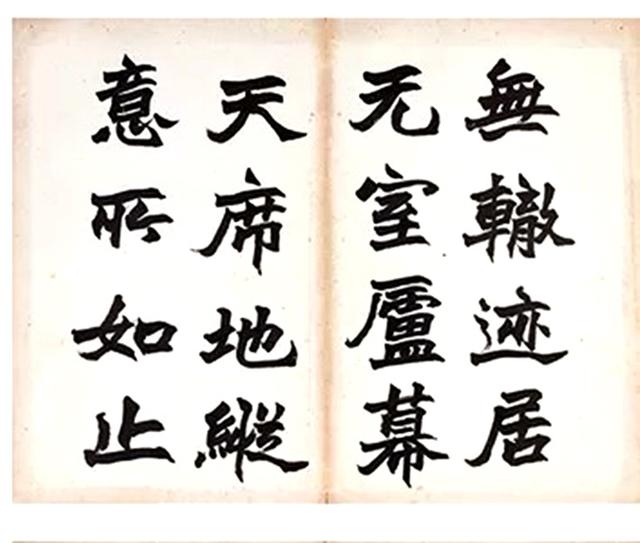 無轍迹居
无室廬幕
天席地縱
意所如止